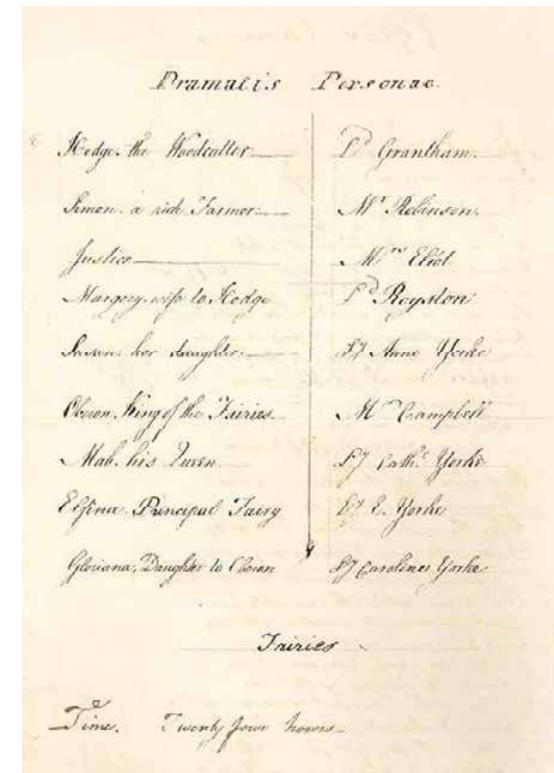 Dramatis Personae.
Hodge. the Woodcutter. Ld Grantham.
Simon. a rich Farmer. Mr Robinson.
Justice Mrs Eliot
Margery. wife to Hodge Ld Royston
Susan. her daughter. Ly Anne Yorke
Oberon. King of the Fairies. Mrs Campbell
Mab. his Queen. Ly Cathe Yorke
Elfina. Principal Fairy Ly E. Yorke
Gloriana, Daughter to Oberon Ly Caroline Yorke
Fairies
Time. Twenty four hours.